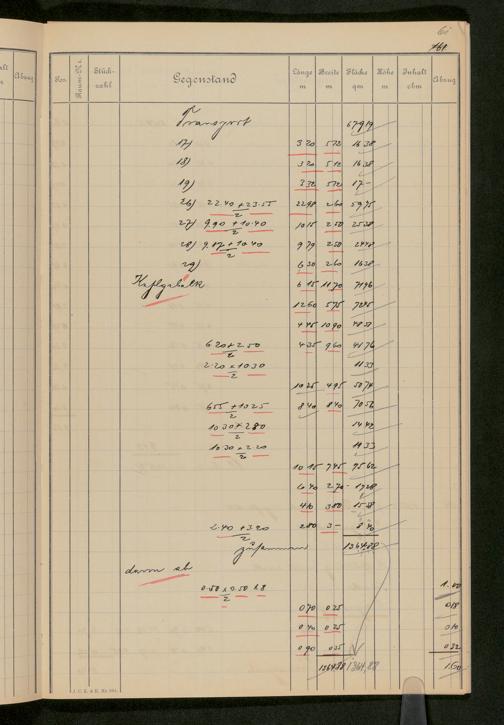 161
Pos. Raum-Nr. Stück-zahl Gegenstand Länge m Breite m Fläche qm Höhe m Inhalt cbm Abzug
Transport 679 19
17) 3 20 5 12 16 38
18) 3 20 5 12 16 38
19) 3 32 5 12 17 -
26) 22.40 + 23.55 / 2 22 98 2 60 59 75
27) 9.90 + 10.40 / 2 10 15 2 50 25 38
28) 9.17 + 10.40 / 2 9 79 2 50 24 48
29) 6 30 2 60 16 38
6 15 11 70 71 96
12 60 5 75 72 45
4 45 10 90 48 51
6.20 + 2.50 / 2 4 35 9 60 41 76
2.20 x 10.30 / 2 11 33
10 25 4 95 50 74
6.55 + 10.25 / 2 8 40 8 40 70 56
10.30 x 2.80 / 2 14 42
10.30 x 2.20 / 2 11 33
10 15 7 45 75 62
6 40 2 70 17 28
4 10 3 80 15 58
2.40 + 3.20 / 2 2 80 3 - 8 40
zusammen 1364,88
davon ab 1.00
0 70 0 25 0 18
0 40 0 25 0 10
0 90 0 35 0 32
1364 88 1364,88 1.60